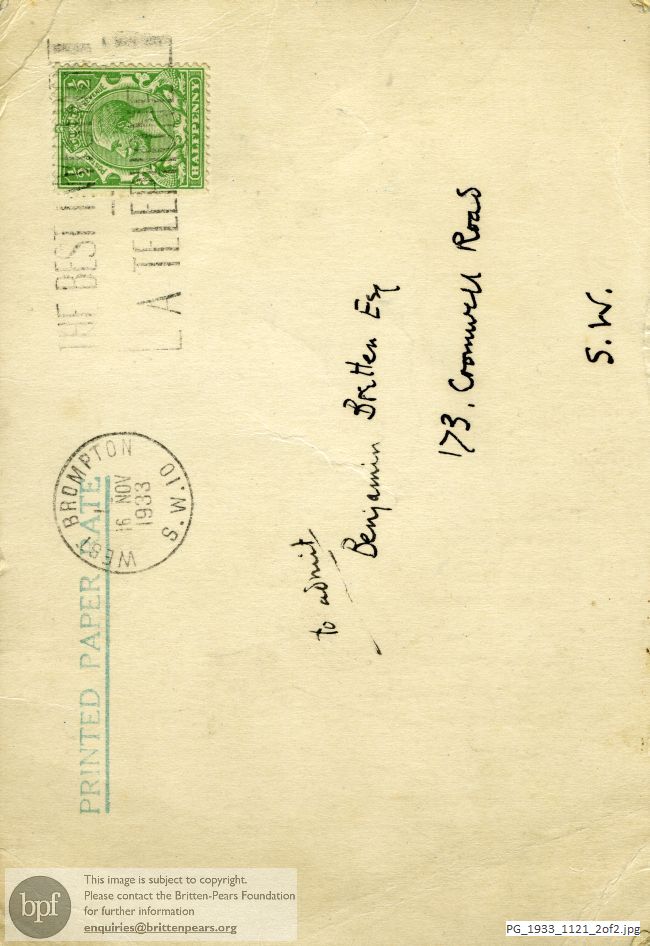 PRINTED PAPER RATE
WEST BROMPTON S.W.10
16 NOV
1933
THE BEST
A TELE
HALFPENNY
½ ½
to admit
Benjamin Britten Esq
173, Cromwell Road
S.W.
bpf
This image is subject to copyright.
Please contact the Britten-Pears Foundation
for further information
enquiries@brittenpears.org
PG_1933_1121_2of2.jpg